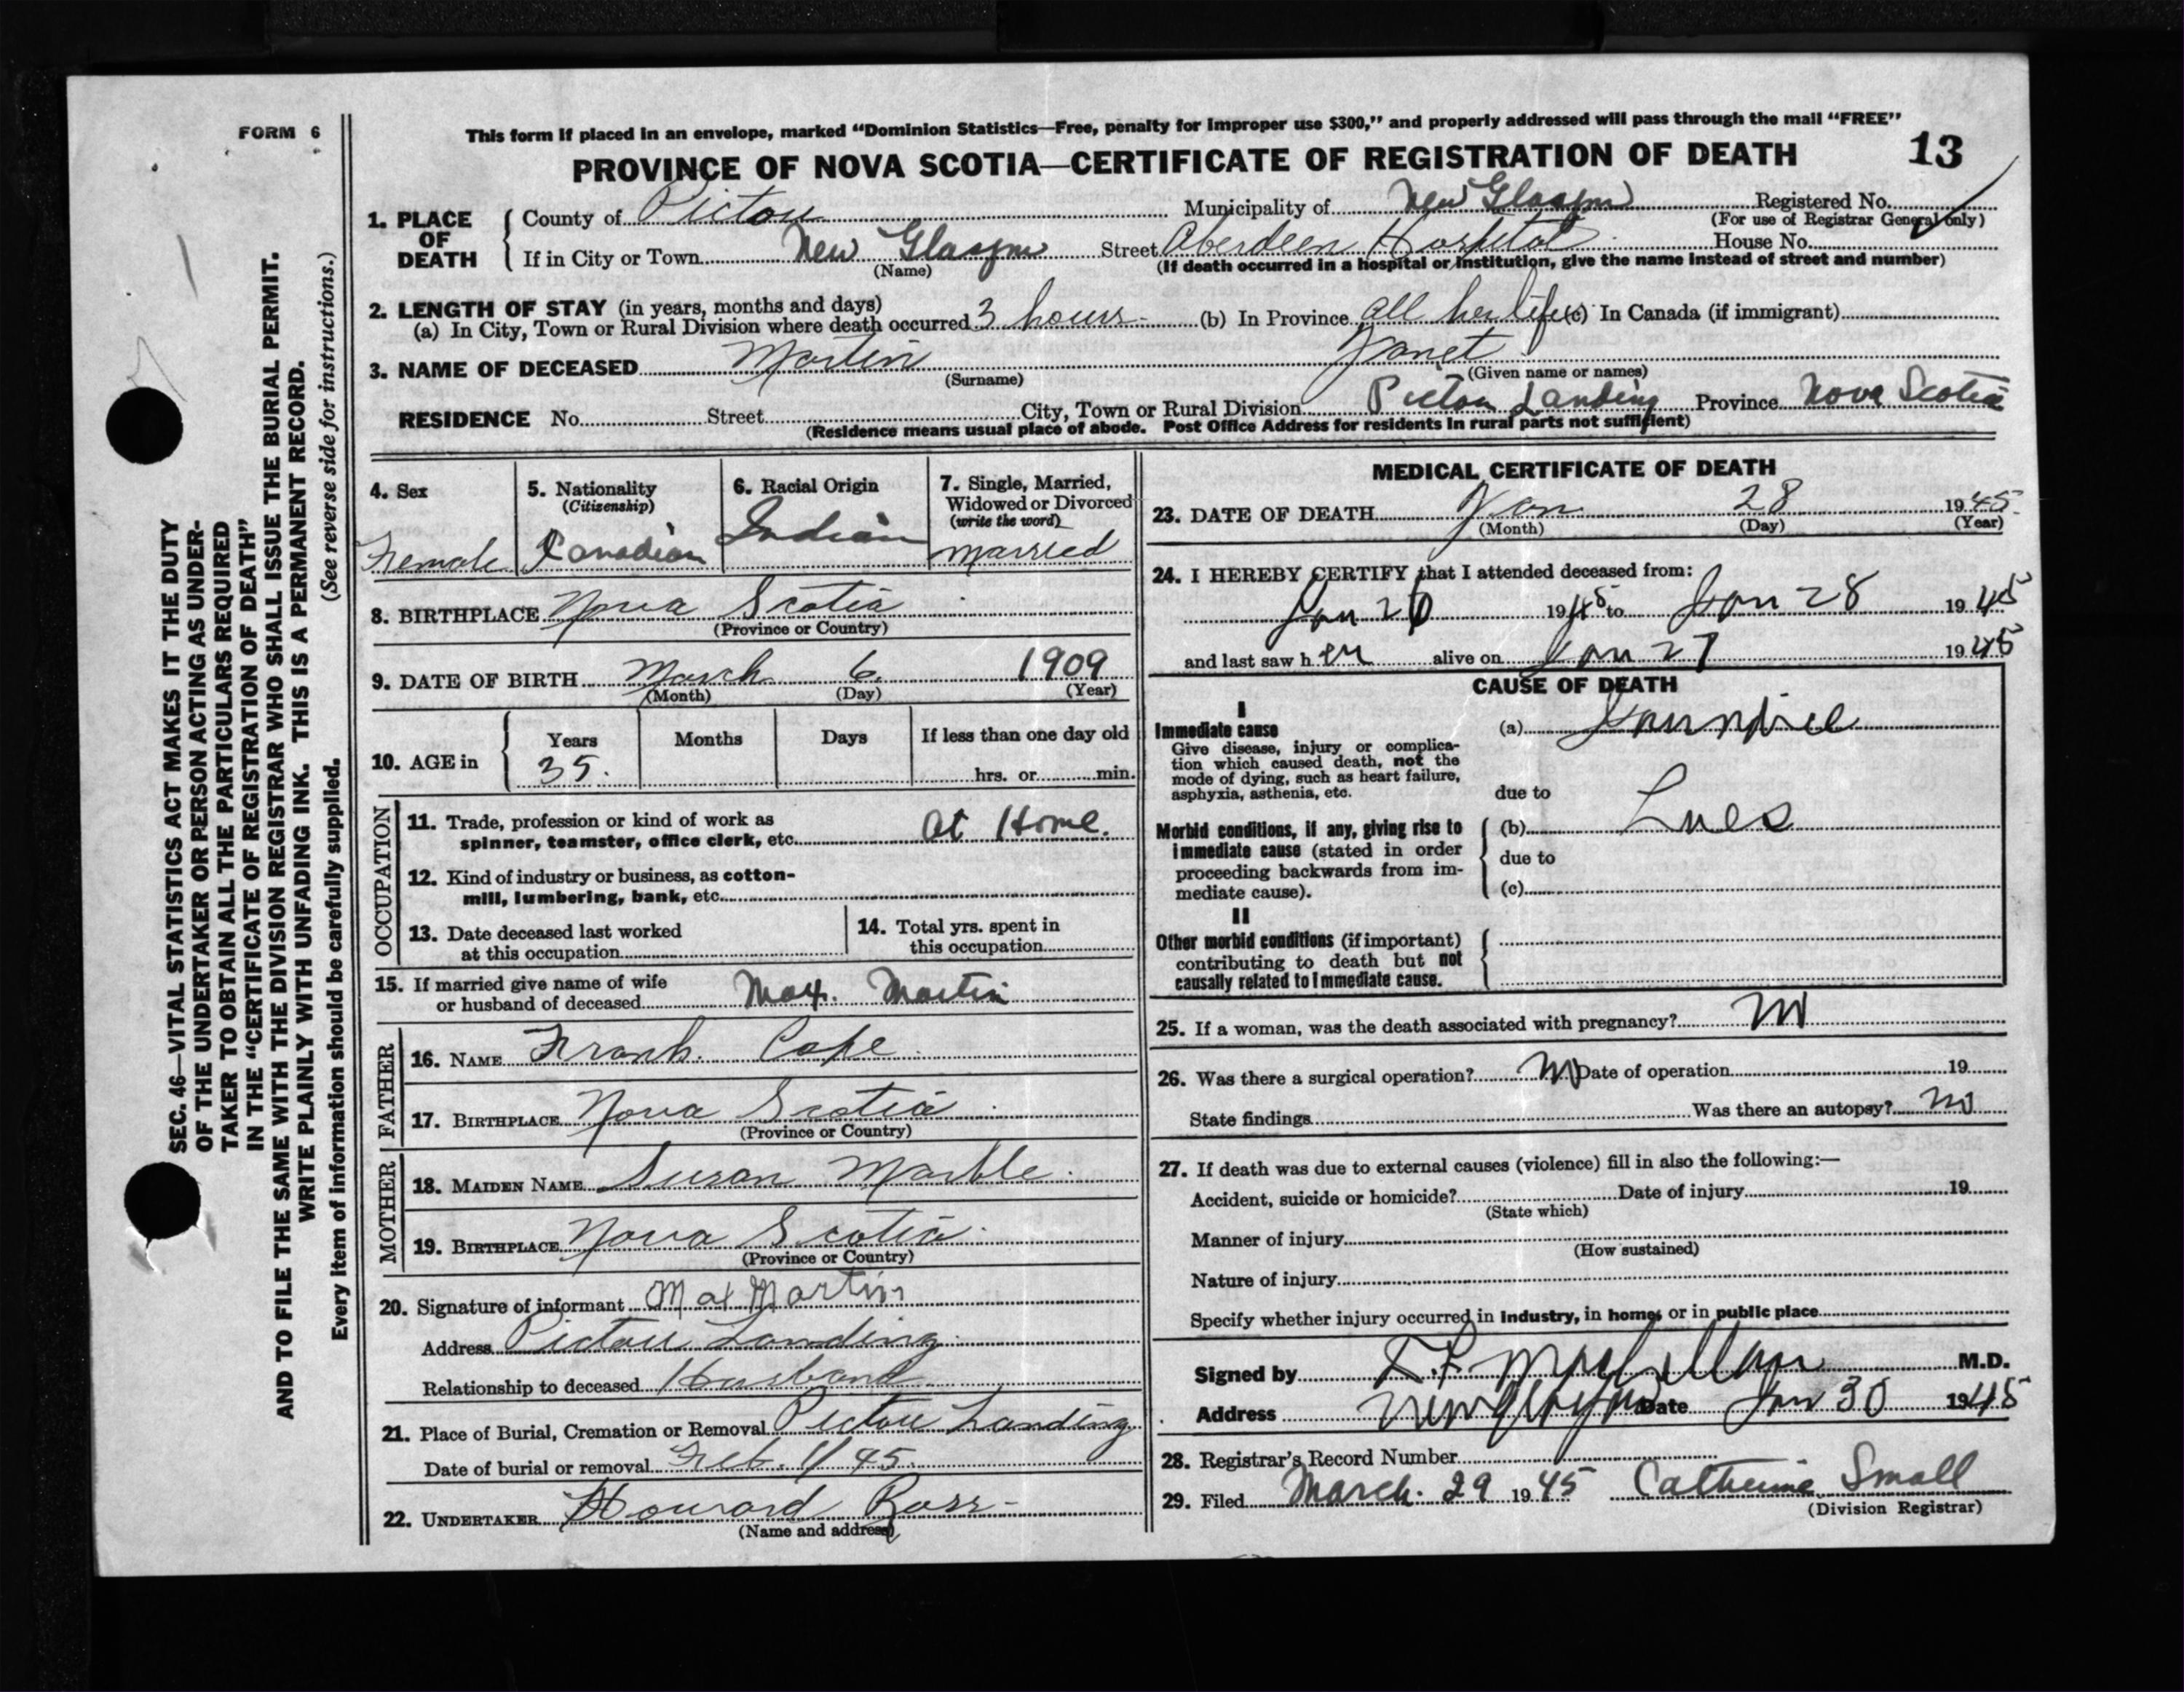 FORM 6
This form if placed in an envelope, marked “Dominion Statistics—Free, penalty for improper use $300,” and properly addressed will pass through the mail “FREE”
PROVINCE OF NOVA SCOTIA—CERTIFICATE OF REGISTRATION OF DEATH 13
1. PLACE OF DEATH
County of Pictou Municipality of New Glasgow Registered No.
(For use of Registrar General only)
If in City or Town New Glasgow Street Aberdeen Hospital House No.
(Name) (If death occurred in a hospital or institution, give the name instead of street and number)
2. LENGTH OF STAY (in years, months and days)
(a) In City, Town or Rural Division where death occurred 3 hours (b) In Province all her life (c) In Canada (if immigrant)
3. NAME OF DECEASED Martin Janet
(Surname) (Given name or names)
RESIDENCE No. Street City, Town or Rural Division Pictou Landing Province Nova Scotia
(Residence means usual place of abode. Post Office Address for residents in rural parts not sufficient)
SEC. 46—VITAL STATISTICS ACT MAKES IT THE DUTY
OF THE UNDERTAKER OR PERSON ACTING AS UNDER-
TAKER TO OBTAIN ALL THE PARTICULARS REQUIRED
IN THE “CERTIFICATE OF REGISTRATION OF DEATH”
AND TO FILE THE SAME WITH THE DIVISION REGISTRAR WHO SHALL ISSUE THE BURIAL PERMIT.
WRITE PLAINLY WITH UNFADING INK. THIS IS A PERMANENT RECORD.
Every item of information should be carefully supplied. (See reverse side for instructions.)
4. Sex
Female
5. Nationality
(Citizenship)
Canadian
6. Racial Origin
Indian
7. Single, Married,
Widowed or Divorced
(write the word)
married
8. BIRTHPLACE Nova Scotia
(Province or Country)
9. DATE OF BIRTH March 6 1909
(Month) (Day) (Year)
10. AGE in Years Months Days If less than one day old
35. hrs. or min.
OCCUPATION
11. Trade, profession or kind of work as
spinner, teamster, office clerk, etc. at Home.
12. Kind of industry or business, as cotton-
mill, lumbering, bank, etc.
13. Date deceased last worked
at this occupation
14. Total yrs. spent in
this occupation
15. If married give name of wife
or husband of deceased Max. Martin
FATHER
16. NAME Frank Cope
17. BIRTHPLACE Nova Scotia
(Province or Country)
MOTHER
18. MAIDEN NAME Susan Marble
19. BIRTHPLACE Nova Scotia
(Province or Country)
20. Signature of informant Max Martin
Address Pictou Landing
Relationship to deceased Husband
21. Place of Burial, Cremation or Removal Pictou Landing
Date of burial or removal Feb. 1/45.
22. UNDERTAKER Howard Ross
(Name and address)
MEDICAL CERTIFICATE OF DEATH
23. DATE OF DEATH Jan 28 1945
(Month) (Day) (Year)
24. I HEREBY CERTIFY that I attended deceased from:
Jan 26 1945 to Jan 28 1945
and last saw her alive on Jan 27 1945
CAUSE OF DEATH
I
Immediate cause
Give disease, injury or complica-
tion which caused death, not the
mode of dying, such as heart failure,
asphyxia, asthenia, etc.
(a) Jaundice
due to
Morbid conditions, if any, giving rise to
immediate cause (stated in order
proceeding backwards from im-
mediate cause).
(b) Lues
due to
(c)
II
Other morbid conditions (if important)
contributing to death but not
causally related to immediate cause.
25. If a woman, was the death associated with pregnancy? No
26. Was there a surgical operation? No Date of operation 19
State findings Was there an autopsy? no
27. If death was due to external causes (violence) fill in also the following:—
Accident, suicide or homicide? Date of injury 19
(State which)
Manner of injury
(How sustained)
Nature of injury
Specify whether injury occurred in industry, in home, or in public place
Signed by MacLellan M.D.
Address New Glasgow Date Jan 30 1945
28. Registrar's Record Number
29. Filed March. 29 1945 Catherine Small
(Division Registrar)